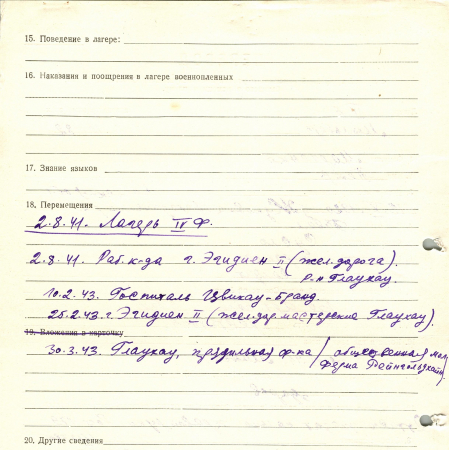 15. Поведение в лагере:
16. Наказания и поощрения в лагере военнопленных
17. Знание языков
18. Перемещения
2.8.41. Лагерь IV Ф.
2.8.41. Раб. к-да г. Эгидиен II (жел. дорога).
р-н Глаухау.
10.2.43. Госпиталь Цвикау-Бранд.
25.2.43. г. Эгидиен II (жел. дор. мастерские Глаухау).
19. Вложения в карточку
30.3.43. Глаухау, прядильная ф-ка / общественная мол.
ферма
20. Другие сведения